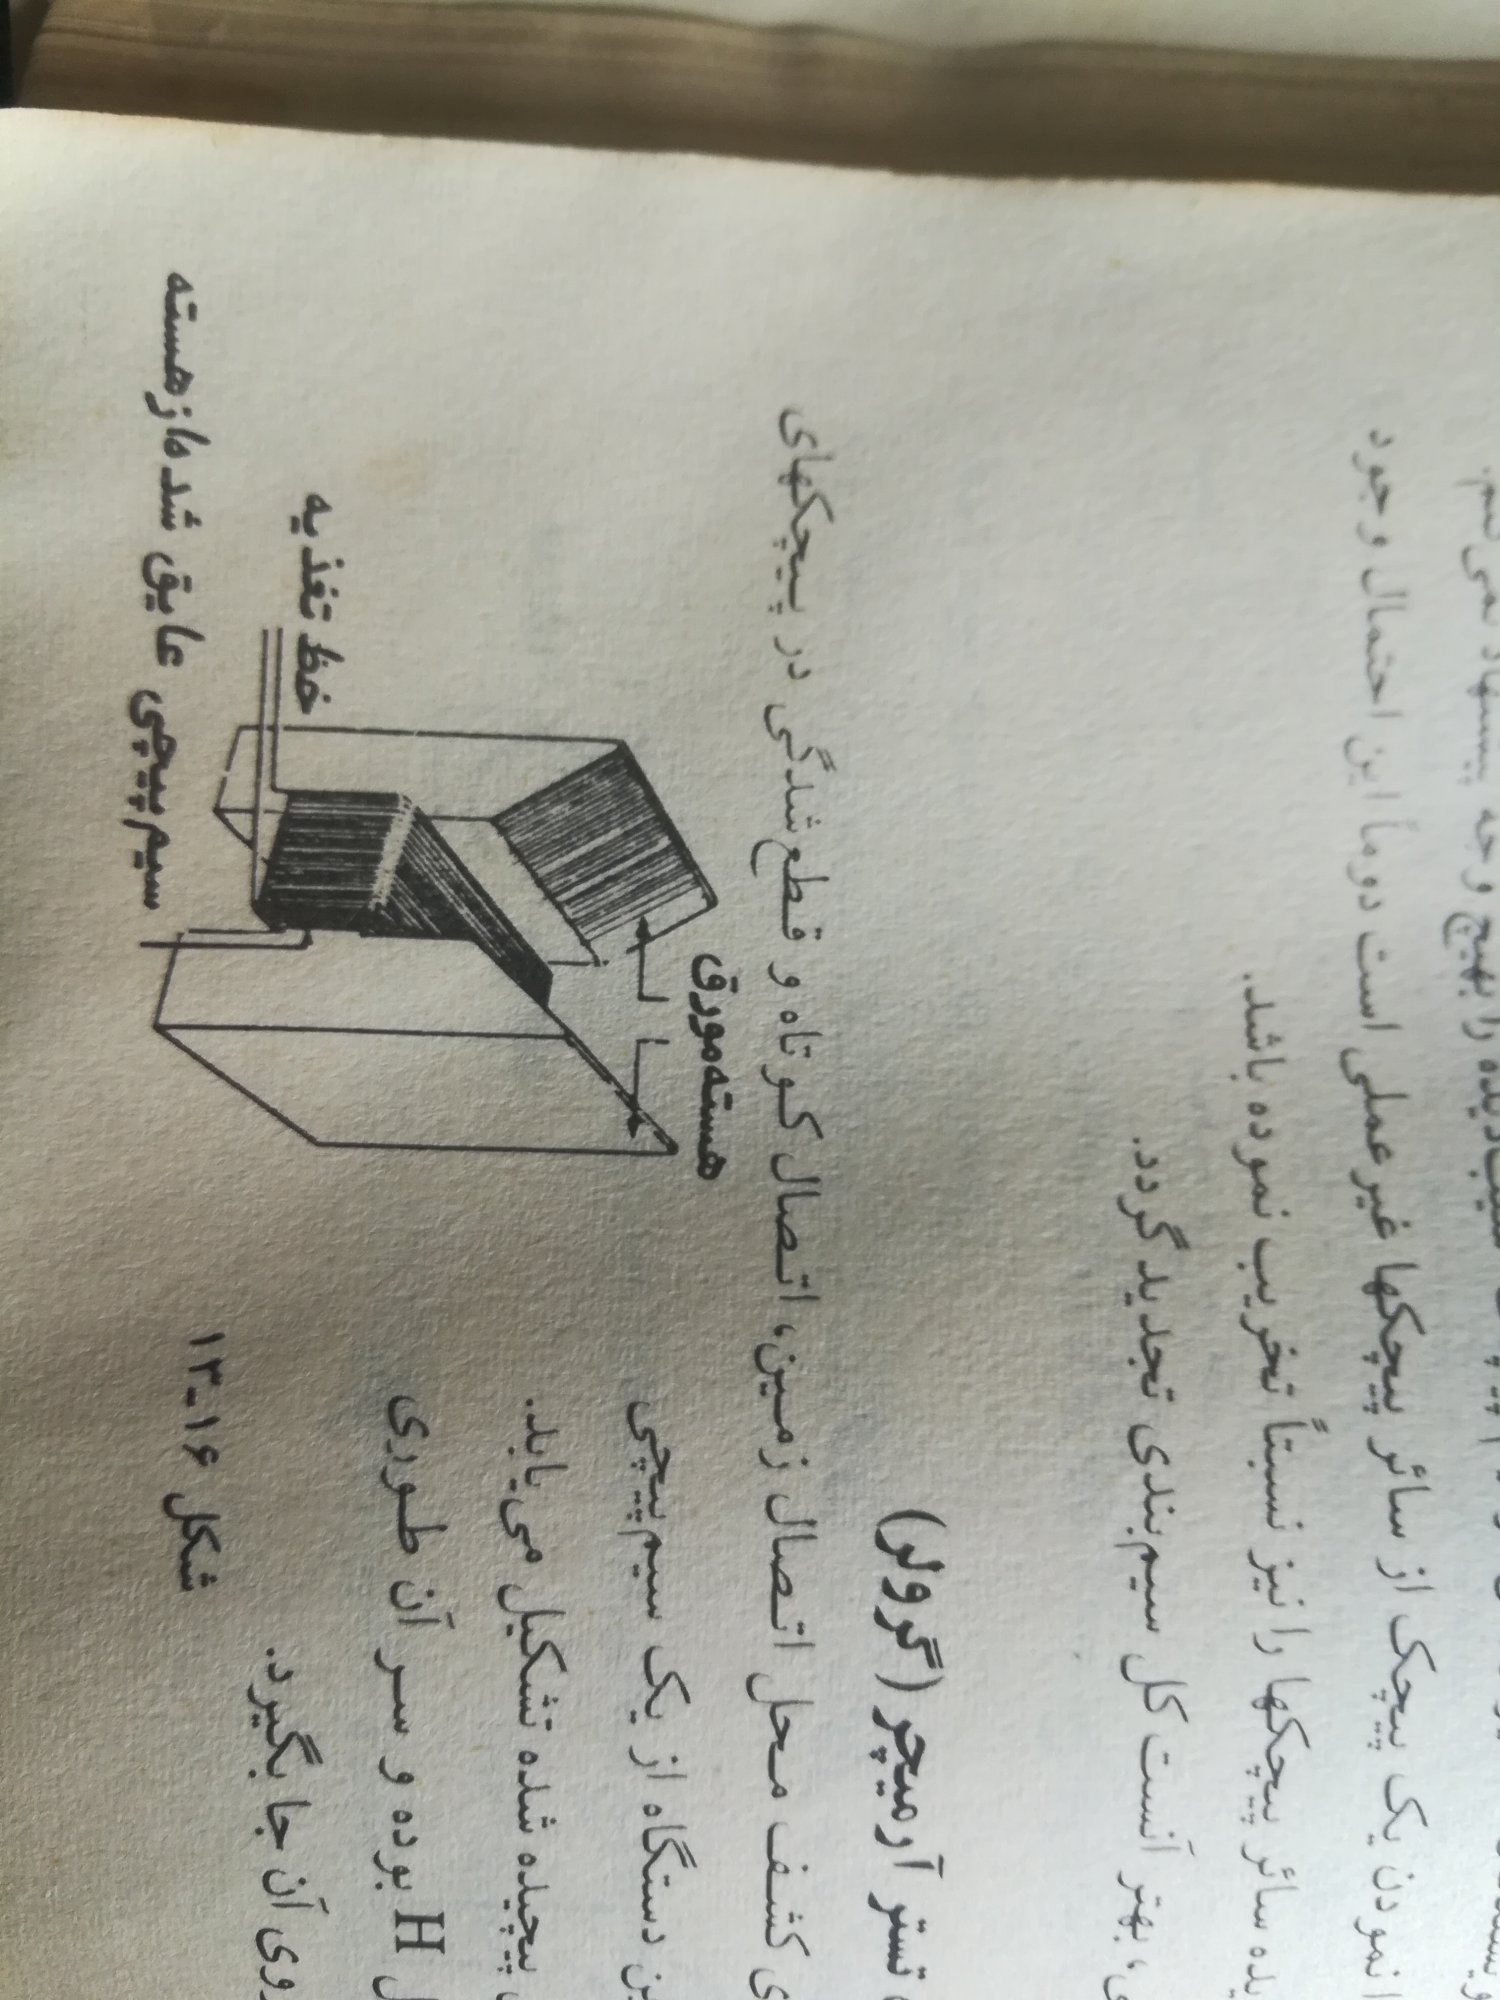 را بهیچ وجه
نمودن یک پیچک از سائر پیچکها غیرعملی است دوماً این احتمال وجود
سائر پیچکها را نیز نسبتاً تخریب نموده باشد.
بهتر آنست کل سیم‌بندی تجدید گردد.
تستر آرمیچر (گرولر)
کشف محل اتصال زمین، اتصال کوتاه و قطع شدگی در پیچکهای
دستگاه از یک سیم‌پیچی
پیچیده شده تشکیل می‌یابد.
H بوده و سر آن طوری
روی آن جا بگیرد.
هسته مورق
خط تغذیه
سیم‌پیچی عایق شده از هسته
شکل ۱۶-۱۳